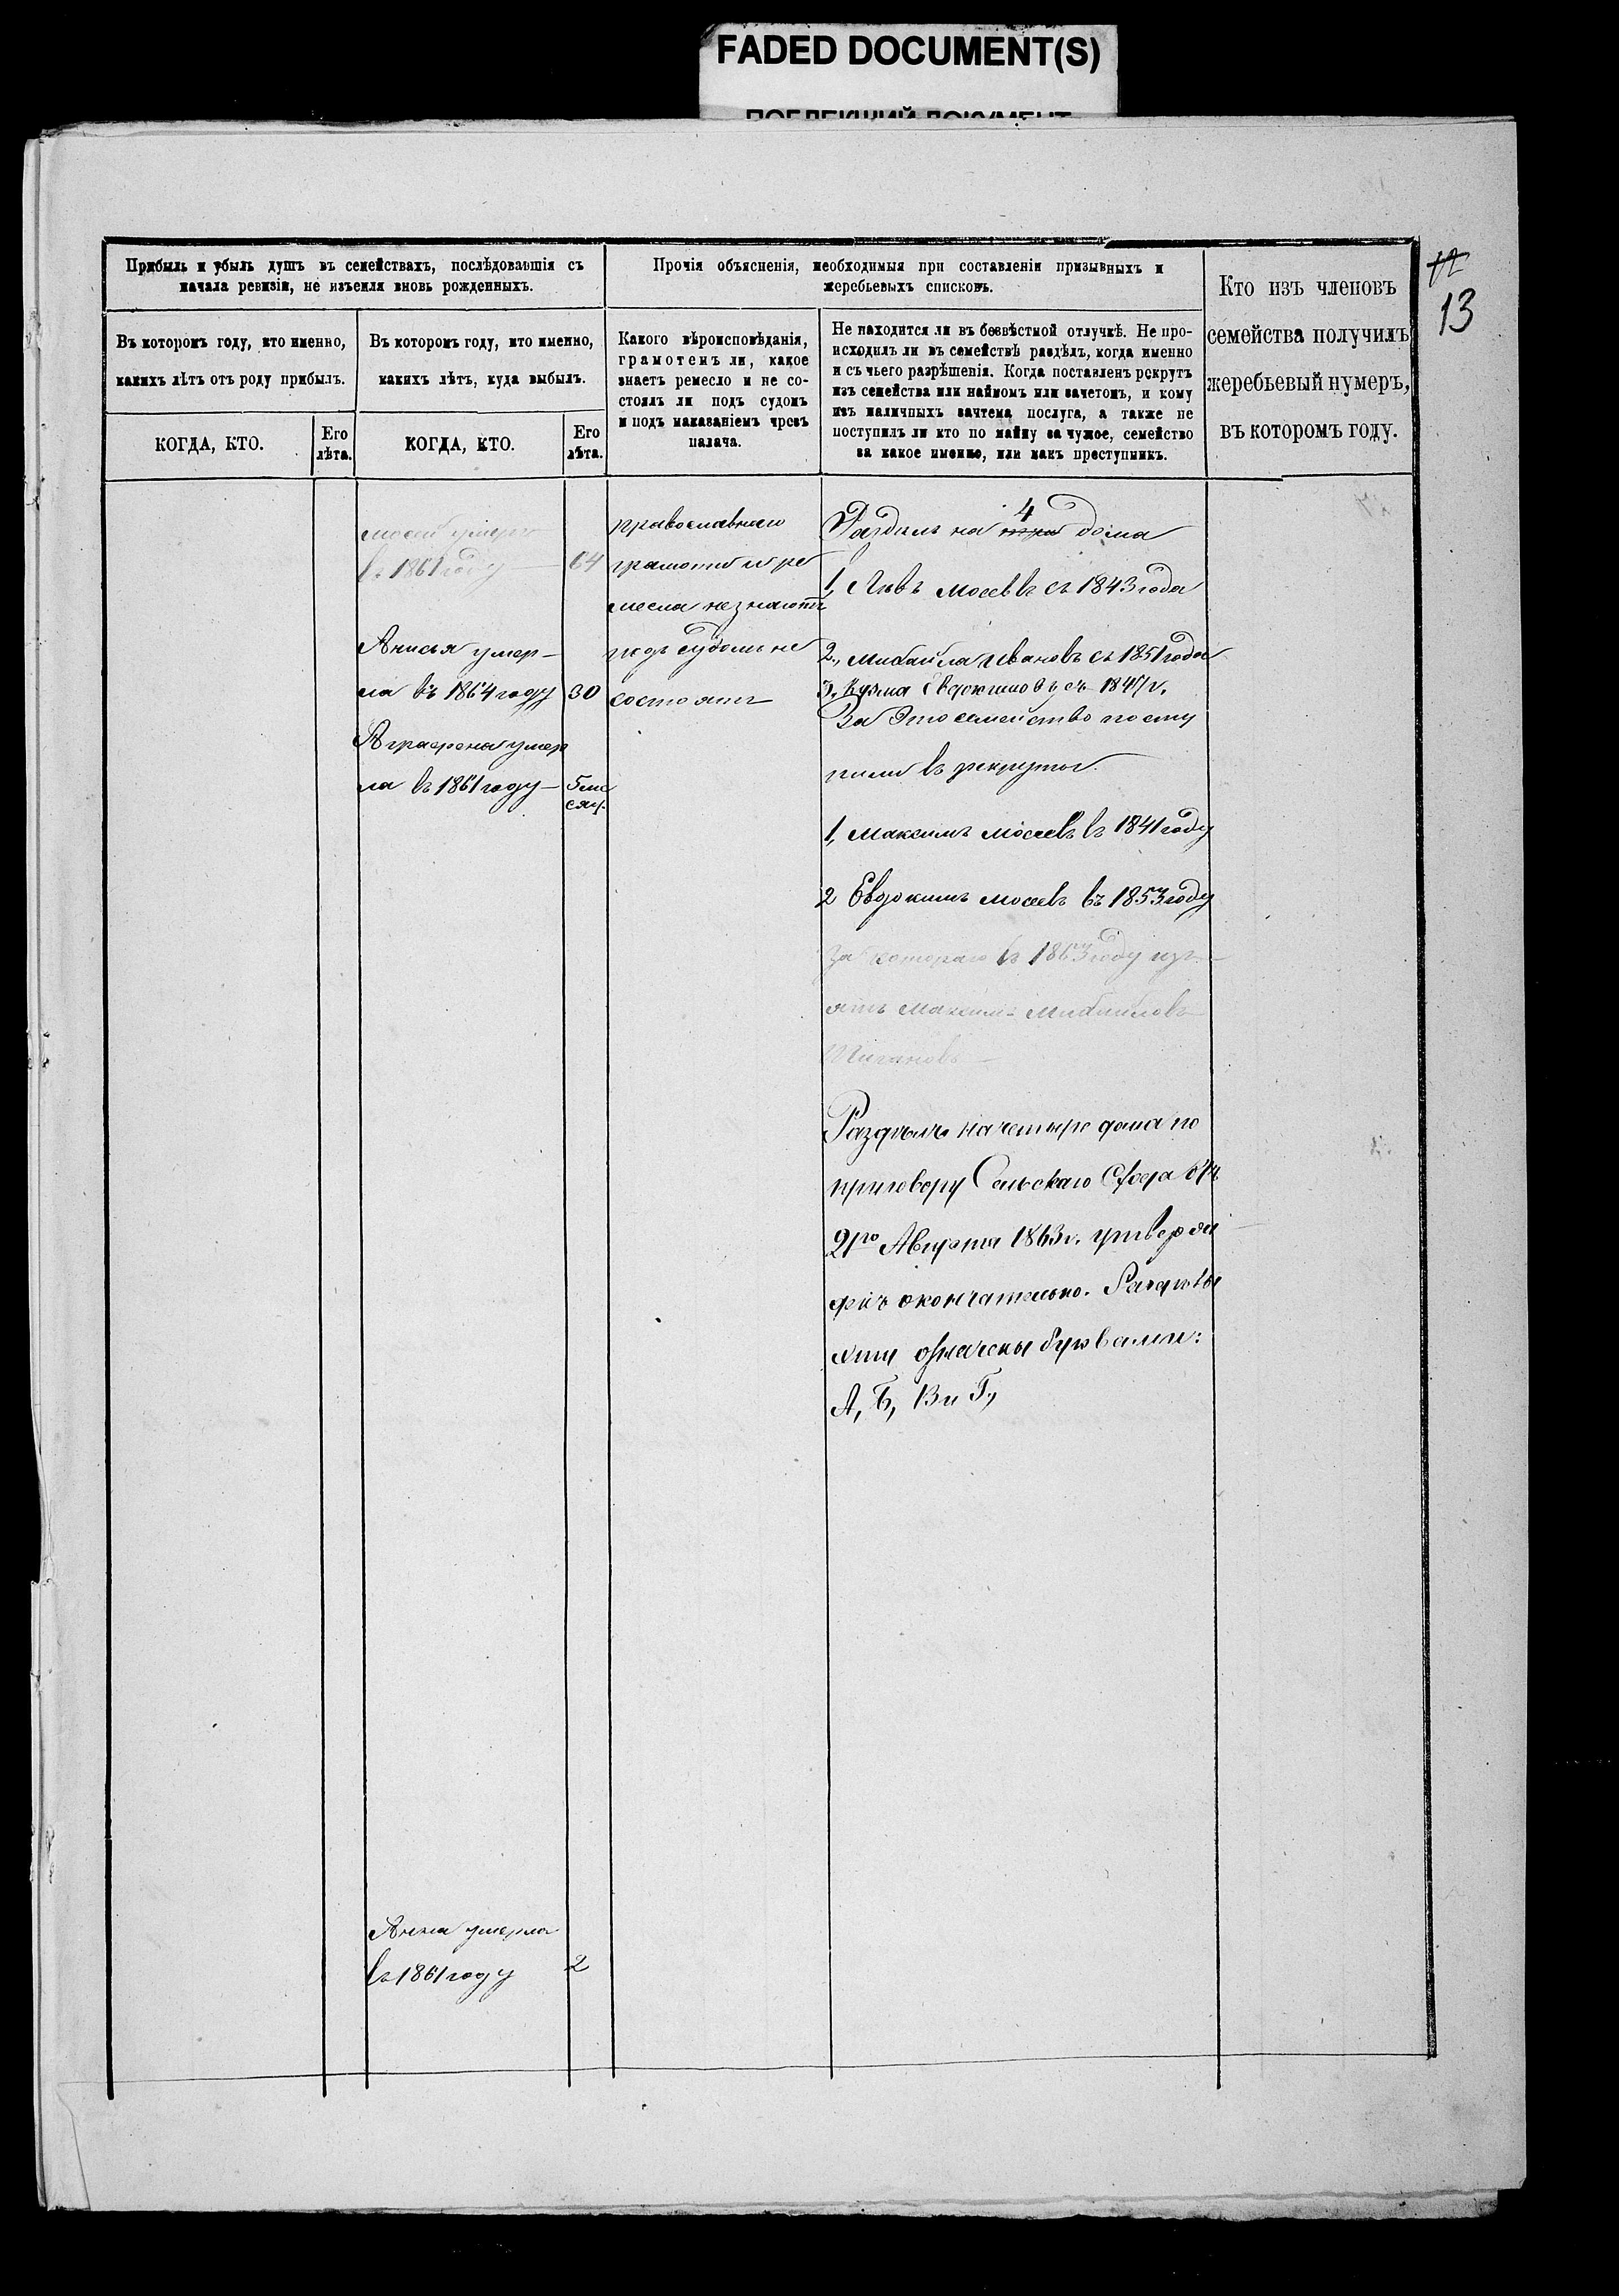 FADED DOCUMENT(S)
ПОБЛЕКШИЙ ДОКУМЕНТ
13
Прибыль и убыль душъ въ семействахъ, послѣдовавшія съ
начала ревизіи, не изъемля вновь рожденныхъ.
Въ которомъ году, кто именно,
какихъ лѣтъ отъ роду прибылъ.
КОГДА, КТО.
Его
лѣта.
Въ которомъ году, кто именно,
какихъ лѣтъ, куда выбылъ.
КОГДА, КТО.
Его
лѣта.
Прочія объясненія, необходимыя при составленіи призывныхъ и
жеребьевыхъ списковъ.
Какого вѣроисповѣданія,
грамотенъ ли, какое
знаетъ ремесло и не со-
стоялъ ли подъ судомъ
и подъ наказаніемъ чрезъ
палача.
Не находится ли въ безвѣстной отлучкѣ. Не про-
исходилъ ли въ семействѣ раздѣлъ, когда именно
и съ чьего разрѣшенія. Когда поставленъ рекрутъ
изъ семейства или наймомъ или зачетомъ, и кому
изъ наличныхъ зачтена послуга, а также не
поступилъ ли кто по найму за чужое, семейство
за какое именно, или какъ преступникъ.
Кто изъ членовъ
семейства получилъ
жеребьевый нумеръ,
въ которомъ году.
мосей умеръ
въ 1861 году — 64
Анисья умер-
ла въ 1864 году 30
Аграфена умер
ла въ 1861 году — 5 ме
сяц.
православнаго
грамоты и ре
месла незнаютъ
подъ судомъ не
состоятъ
4
Раздѣлъ на дома
1, Левъ Мосеевъ съ 1843 года
2., Михайла Ивановъ съ 1851 года
3. Кузма Евдокимовъ съ 1847 г.
За Это семейство посту
пили въ рекруты
1, Максимъ Мосеевъ въ 1841 году
2 Евдокимъ Мосеевъ въ 1853 году
За котораго въ 1863 году изъ-
ятъ Максимъ Михайловъ
Раздѣлъ на четыре дома по
приговору Сельскаго Схода отъ
21го Августа 1863 г. утверж
денъ окончательно. Раздѣлы
эти означены буквами:
А, Б, В и Г,
Анна умерла
въ 1861 году 2